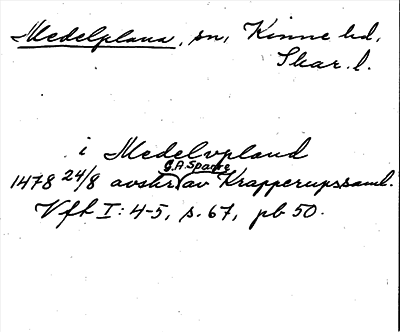 Medelplana, sn, Kinne hd,
Skar. l.
i Medelvpland
G.A. Sparre
1478 24/8 avskr av Krapperupssaml.
Vft I: 4-5, s. 67, pb 50.